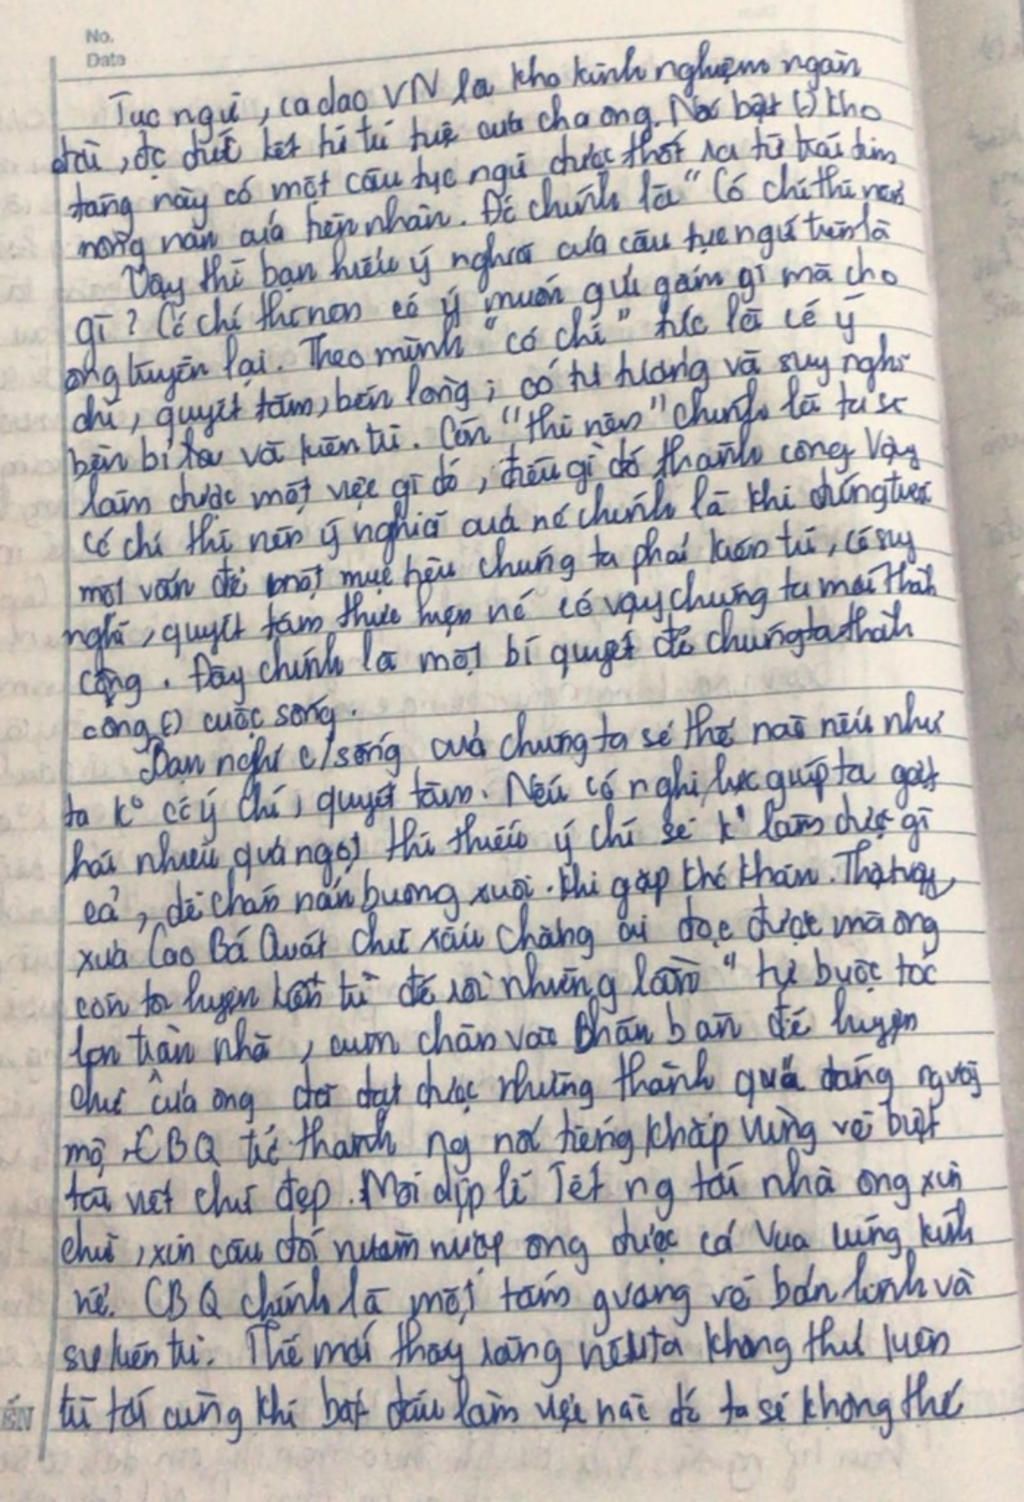 No.
Date
Tục ngữ, ca dao VN là kho kinh nghiệm ngàn
đời, đc đúc kết từ trí tuệ của cha ông. Nổi bật (.) kho
tàng này có một câu tục ngữ được thốt ra từ trái tim
nồng nàn của tiền nhân. Đó chính là "Có chí thì nên
Vậy thì bạn hiểu ý nghĩa của câu tục ngữ trên là
gì? Có chí thì nên có ý muốn gửi gắm gì mà cha
ông truyền lại. Theo mình "có chí" tức là có ý
chí, quyết tâm, bền lòng; có tư tưởng và suy nghĩ
bền bỉ và kiên trì. Còn "thì nên" chính là ta sẽ
làm được một việc gì đó, điều gì đó thành công Vậy
có chí thì nên ý nghĩa của nó chính là khi đứng trước
một vấn đề một mục tiêu chúng ta phải kiên trì, có suy
nghĩ, quyết tâm thực hiện nó có vậy chúng ta mới thành
công. Đây chính là một bí quyết để chúng ta thành
công (.) cuộc sống.
Bạn nghĩ c/sống của chúng ta sẽ thế nào nếu như
ta k° có ý chí, quyết tâm. Nếu có nghị lực giúp ta gặt
hái nhiều quả ngọt thì thiếu ý chí sẽ k° làm được gì
cả, dễ chán nản buông xuôi. khi gặp khó khăn. Thật vậy,
xưa Cao Bá Quát chữ xấu chẳng ai đọc được mà ông
còn luyện kiên trì để rồi những lần "tự buộc tóc
lên trần nhà, cùm chân vào chân bàn để luyện
chữ của ông đã đạt được những thành quả đáng ngưỡng
mộ. CBQ trở thành ng nổi tiếng khắp vùng về biệt
tài viết chữ đẹp. Mỗi dịp lễ Tết ng tới nhà ông xin
chữ, xin câu đối nườm nượp ông được cả vua cũng kính
nể. CBQ chính là một tấm gương về bản lĩnh và
sự kiên trì. Thế mới thấy rằng nếu ta không thể kiên
trì tới cùng khi bắt đầu làm việc nào đó ta sẽ không thể